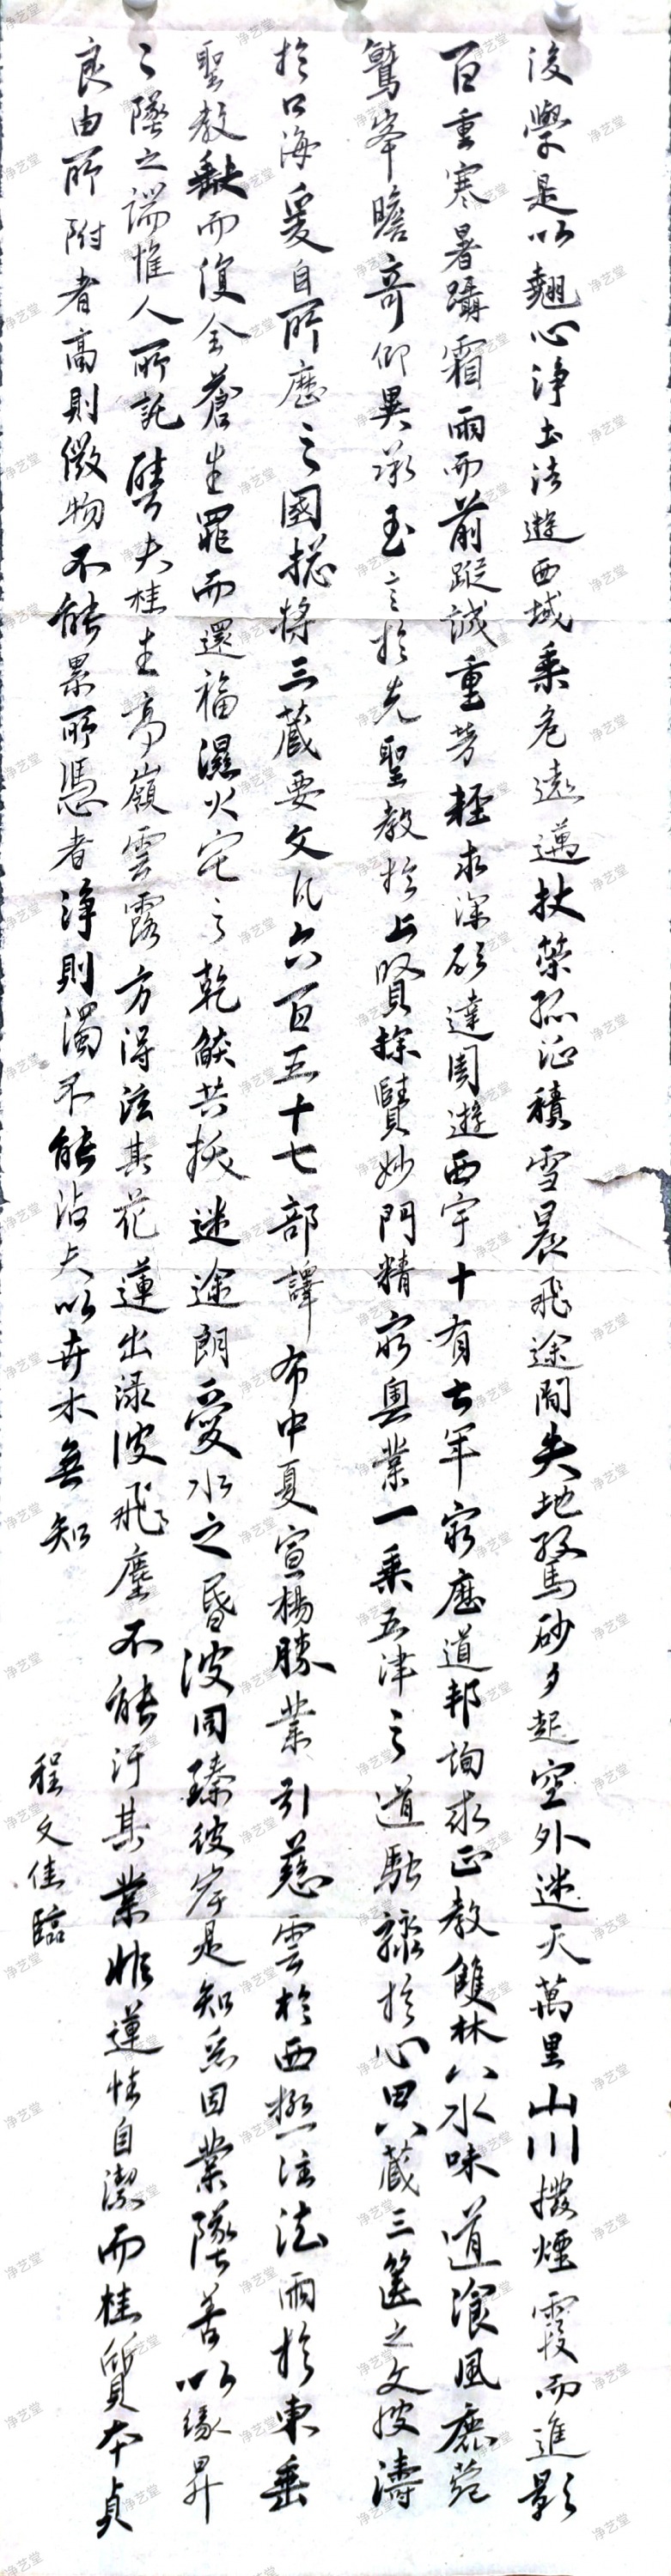 後學是以翹心淨土法遊西域乘危遠邁杖策孤征積雪晨飛途間失地驚砂夕起空外迷天萬里山川撥煙霞而進影
百重寒暑躡霜雨而前蹤誠重勞輕求深欲達周遊西宇十有七年窮歷道邦詢求正教雙林八水味道湌風鹿菀
鷲峯瞻奇仰異承至言於先聖受教於上賢探賾妙門精窮奧業一乘五津之道馳驟於心田八藏三篋之文波濤
於口海爰自所歷之國揔將三藏要文凡六百五十七部譯布中夏宣楊勝業引慈雲於西極注法雨於東垂
聖教缺而復全蒼生罪而還福濕火宅之乾焰共拔迷途朗愛水之昏波同臻彼岸是知惡因業墜善以緣昇
〻墜之端惟人所託譬夫桂生高嶺雲露方得泫其花蓮出淥波飛塵不能汙其葉非蓮性自潔而桂質本貞
良由所附者高則微物不能累所憑者淨則濁不能沾夫以卉木無知
程文佳臨
净艺堂